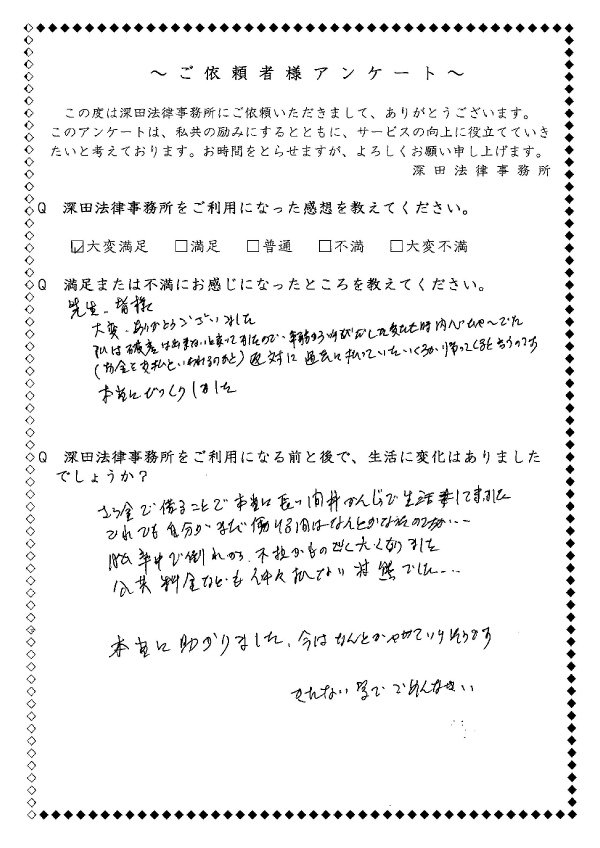 ～ご依頼者様アンケート～
この度は深田法律事務所にご依頼いただきまして、ありがとうございます。
このアンケートは、私共の励みにするとともに、サービスの向上に役立てていき
たいと考えております。お時間をとらせますが、よろしくお願い申し上げます。
深田法律事務所
Q 深田法律事務所をご利用になった感想を教えてください。
☑大変満足 □満足 □普通 □不満 □大変不満
Q 満足または不満にお感じになったところを教えてください。
先生、皆様
大変、ありがとうございました
私は破産は出来ないと思ってましたので、
反対に過去に払っていた いくらか 帰ってくると言うのです
本当にびっくりしました
Q 深田法律事務所をご利用になる前と後で、生活に変化はありました
でしょうか？
サラ金で借ることで本当に長い間 かんじで生活 してきました
それでも自分がまだ働ける間はなんとかなったのですが…
脳卒中で倒れから、不
公共料金なども 払えない状態でした…
本当に助かりました、今はなんとかやっていけそうです
きたない字でごめんなさい